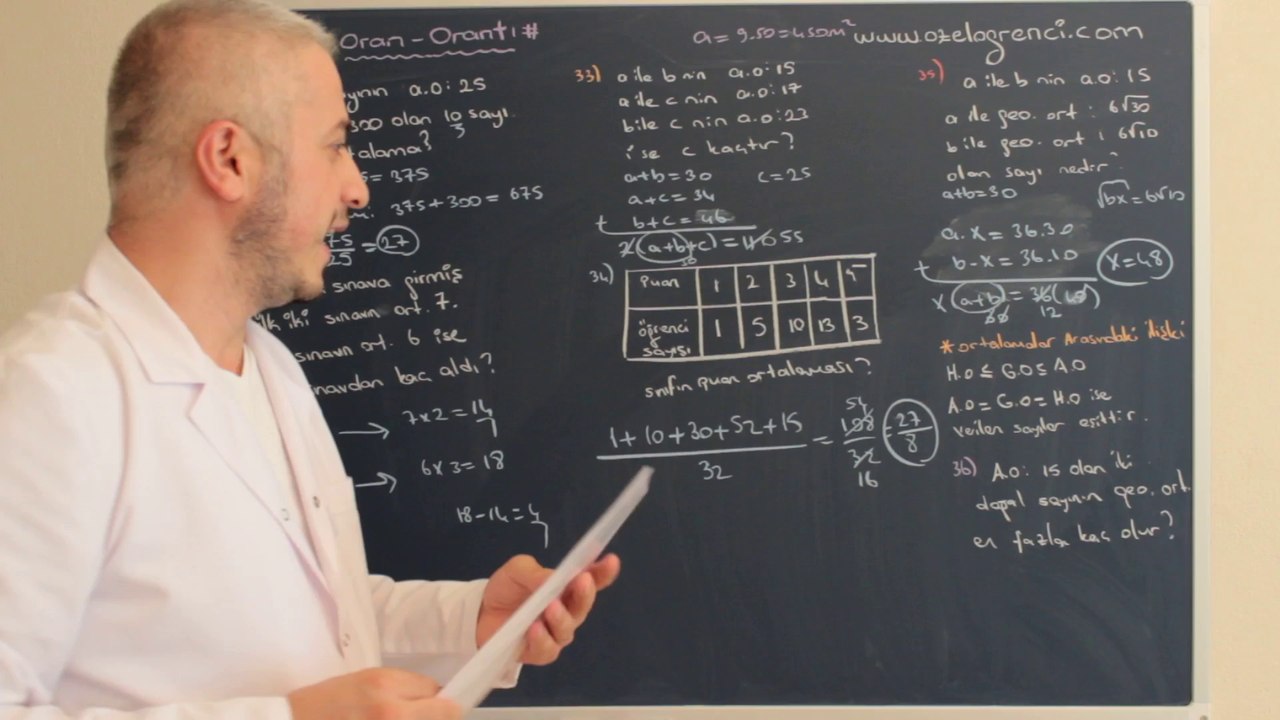 Oran - Orantı #
a = 9.50 = 450m²
www.ozelogrenci.com
yının a.o: 25
300 olan 10 sayı
3
alama?
5 = 375
375 + 300 = 675
75
25
= 27
sınava girmiş
ilk iki sınavın ort. 7.
sınavın ort. 6 ise
ınavdan kaç aldı?
7x2 = 14
6x3 = 18
18 - 14 = 4
33) a ile b nin a.o: 15
a ile c nin a.o: 17
b ile c nin a.o: 23
ise c kaçtır?
a+b = 30 c = 25
a+c = 34
+ b+c = 46
2(a+b+c) = 110 55
30
34)
Puan 1 2 3 4 5
öğrenci sayısı 1 5 10 13 3
sınıfın puan ortalaması?
1 + 10 + 30 + 52 + 15
32
= 54
108
32
16
= 27
8
35) a ile b nin a.o: 15
a ile geo. ort : 6√30
b ile geo. ort : 6√10
olan sayı nedir?
a+b = 30 √bx = 6√10
a.x = 36.30
+ b.x = 36.10 x = 48
x (a+b) = 36(40)
12
* Ortalamalar Arasındaki ilişki
H.O ≤ G.O ≤ A.O
A.O = G.O = H.O ise
verilen sayılar eşittir.
36) A.O: 15 olan iki
doğal sayının geo. ort.
en fazla kaç olur?